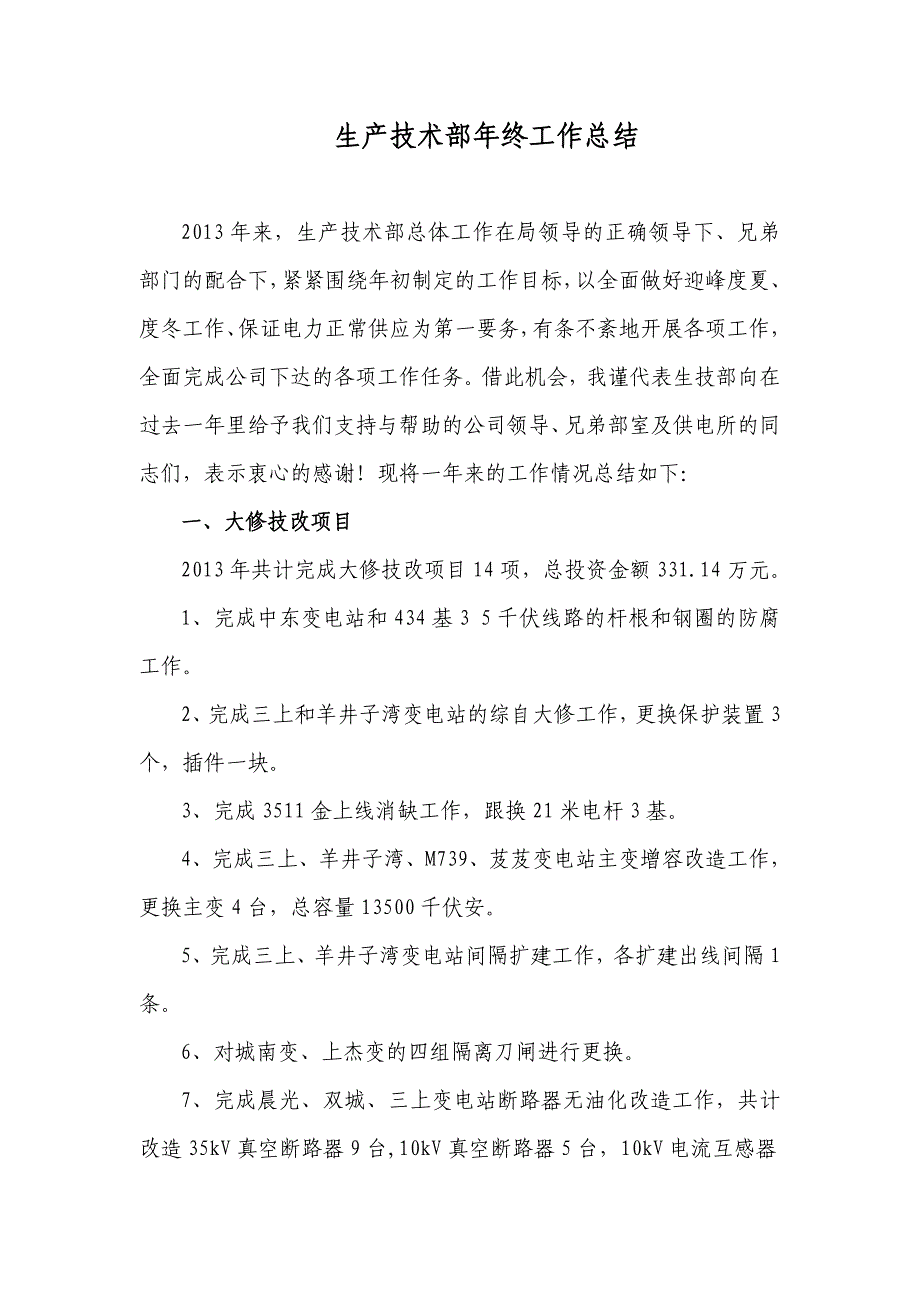 生产技术部年终工作总结
2013 年来，生产技术部总体工作在局领导的正确领导下、兄弟
部门的配合下，紧紧围绕年初制定的工作目标，以全面做好迎峰度夏、
度冬工作、保证电力正常供应为第一要务，有条不紊地开展各项工作，
全面完成公司下达的各项工作任务。借此机会，我谨代表生技部向在
过去一年里给予我们支持与帮助的公司领导、兄弟部室及供电所的同
志们，表示衷心的感谢！现将一年来的工作情况总结如下：
一、大修技改项目
2013 年共计完成大修技改项目 14 项，总投资金额 331.14 万元。
1、完成中东变电站和 434 基 3 5 千伏线路的杆根和钢圈的防腐
工作。
2、完成三上和羊井子湾变电站的综自大修工作，更换保护装置 3
个，插件一块。
3、完成 3511 金上线消缺工作，跟换 21 米电杆 3 基。
4、完成三上、羊井子湾、M739、芨芨变电站主变增容改造工作，
更换主变 4 台，总容量 13500 千伏安。
5、完成三上、羊井子湾变电站间隔扩建工作，各扩建出线间隔 1
条。
6、对城南变、上杰变的四组隔离刀闸进行更换。
7、完成晨光、双城、三上变电站断路器无油化改造工作，共计
改造 35kV 真空断路器 9 台,10kV 真空断路器 5 台，10kV 电流互感器